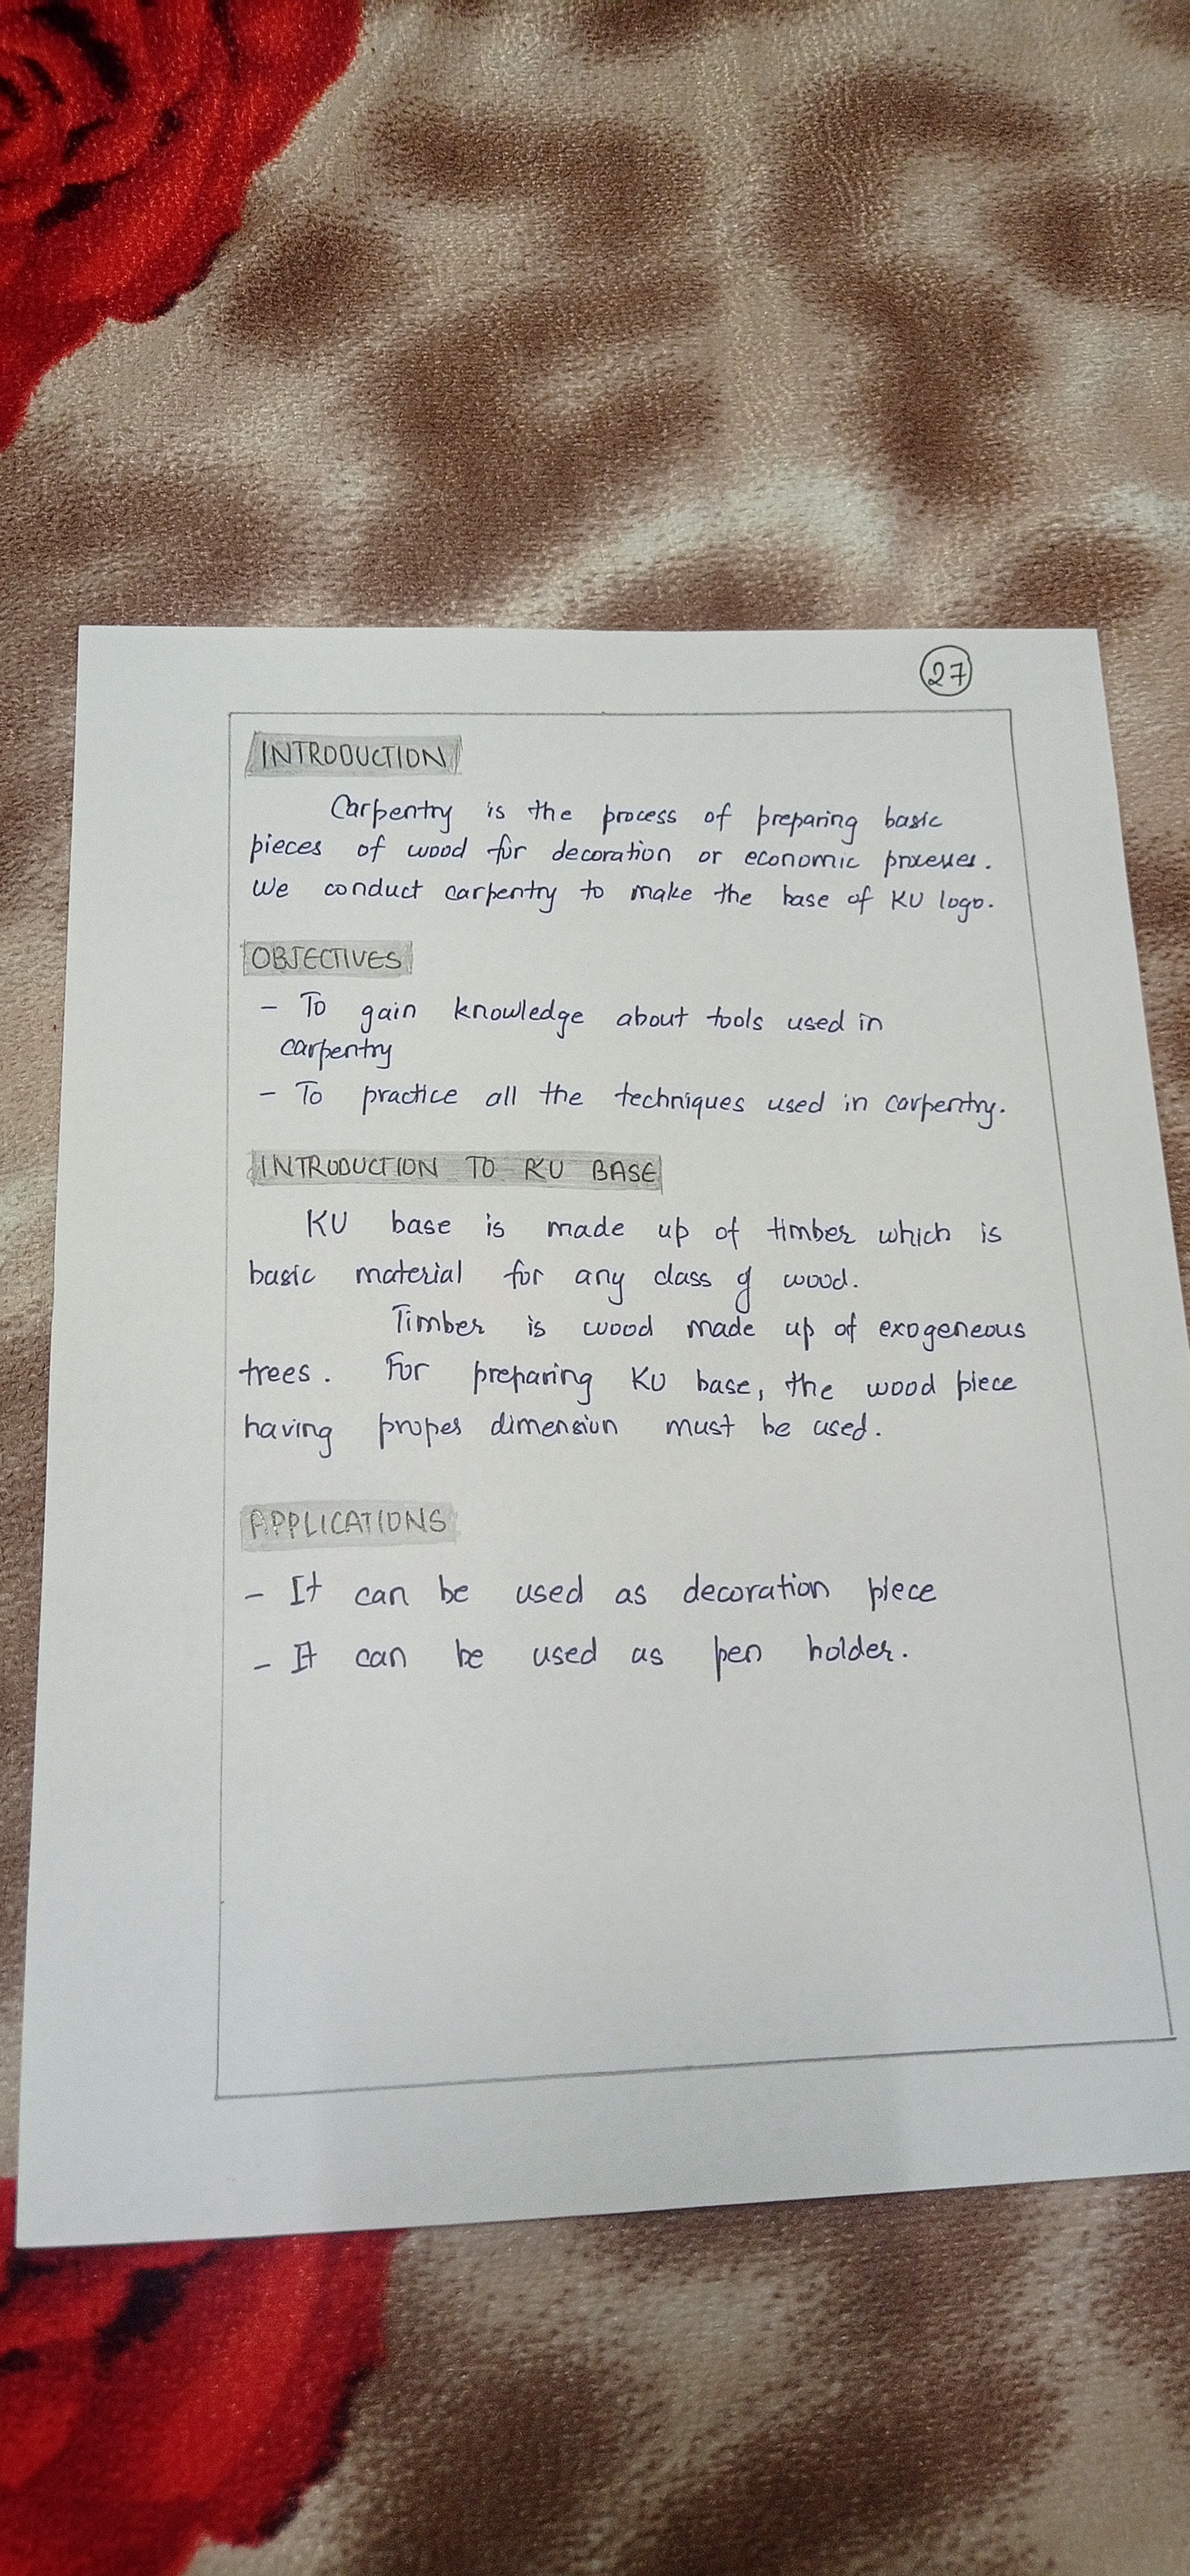 27
INTRODUCTION
Carpentry is the process of preparing basic
pieces of wood for decoration or economic processes.
We conduct carpentry to make the base of KU logo.
OBJECTIVES
- To gain knowledge about tools used in
carpentry
- To practice all the techniques used in carpentry.
INTRODUCTION TO KU BASE
KU base is made up of timber which is
basic material for any class of wood.
Timber is wood made up of exogeneous
trees. For preparing KU base, the wood piece
having proper dimension must be used.
APPLICATIONS
- It can be used as decoration piece
- It can be used as pen holder.